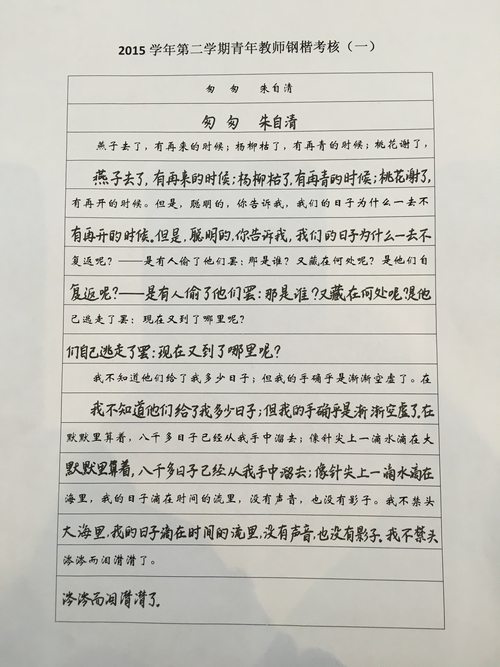 2015 学年第二学期青年教师钢楷考核（一）
匆 匆 朱自清
匆 匆 朱自清
燕子去了，有再来的时候；杨柳枯了，有再青的时候；桃花谢了，
燕子去了，有再来的时候；杨柳枯了，有再青的时候；桃花谢了，
有再开的时候。但是，聪明的，你告诉我，我们的日子为什么一去不
有再开的时候。但是，聪明的，你告诉我，我们的日子为什么一去不
复返呢？——是有人偷了他们罢：那是谁？又藏在何处呢？是他们自
复返呢？——是有人偷了他们罢：那是谁？又藏在何处呢？是他
己逃走了罢：现在又到了哪里呢？
们自己逃走了罢：现在又到了哪里呢？
我不知道他们给了我多少日子；但我的手确乎是渐渐空虚了。在
我不知道他们给了我多少日子；但我的手确乎是渐渐空虚了。在
默默里算着，八千多日子已经从我手中溜去；像针尖上一滴水滴在大
默默里算着，八千多日子已经从我手中溜去；像针尖上一滴水滴在
海里，我的日子滴在时间的流里，没有声音，也没有影子。我不禁头
大海里，我的日子滴在时间的流里，没有声音，也没有影子。我不禁头
涔涔而泪潸潸了。
涔涔而泪潸潸了。